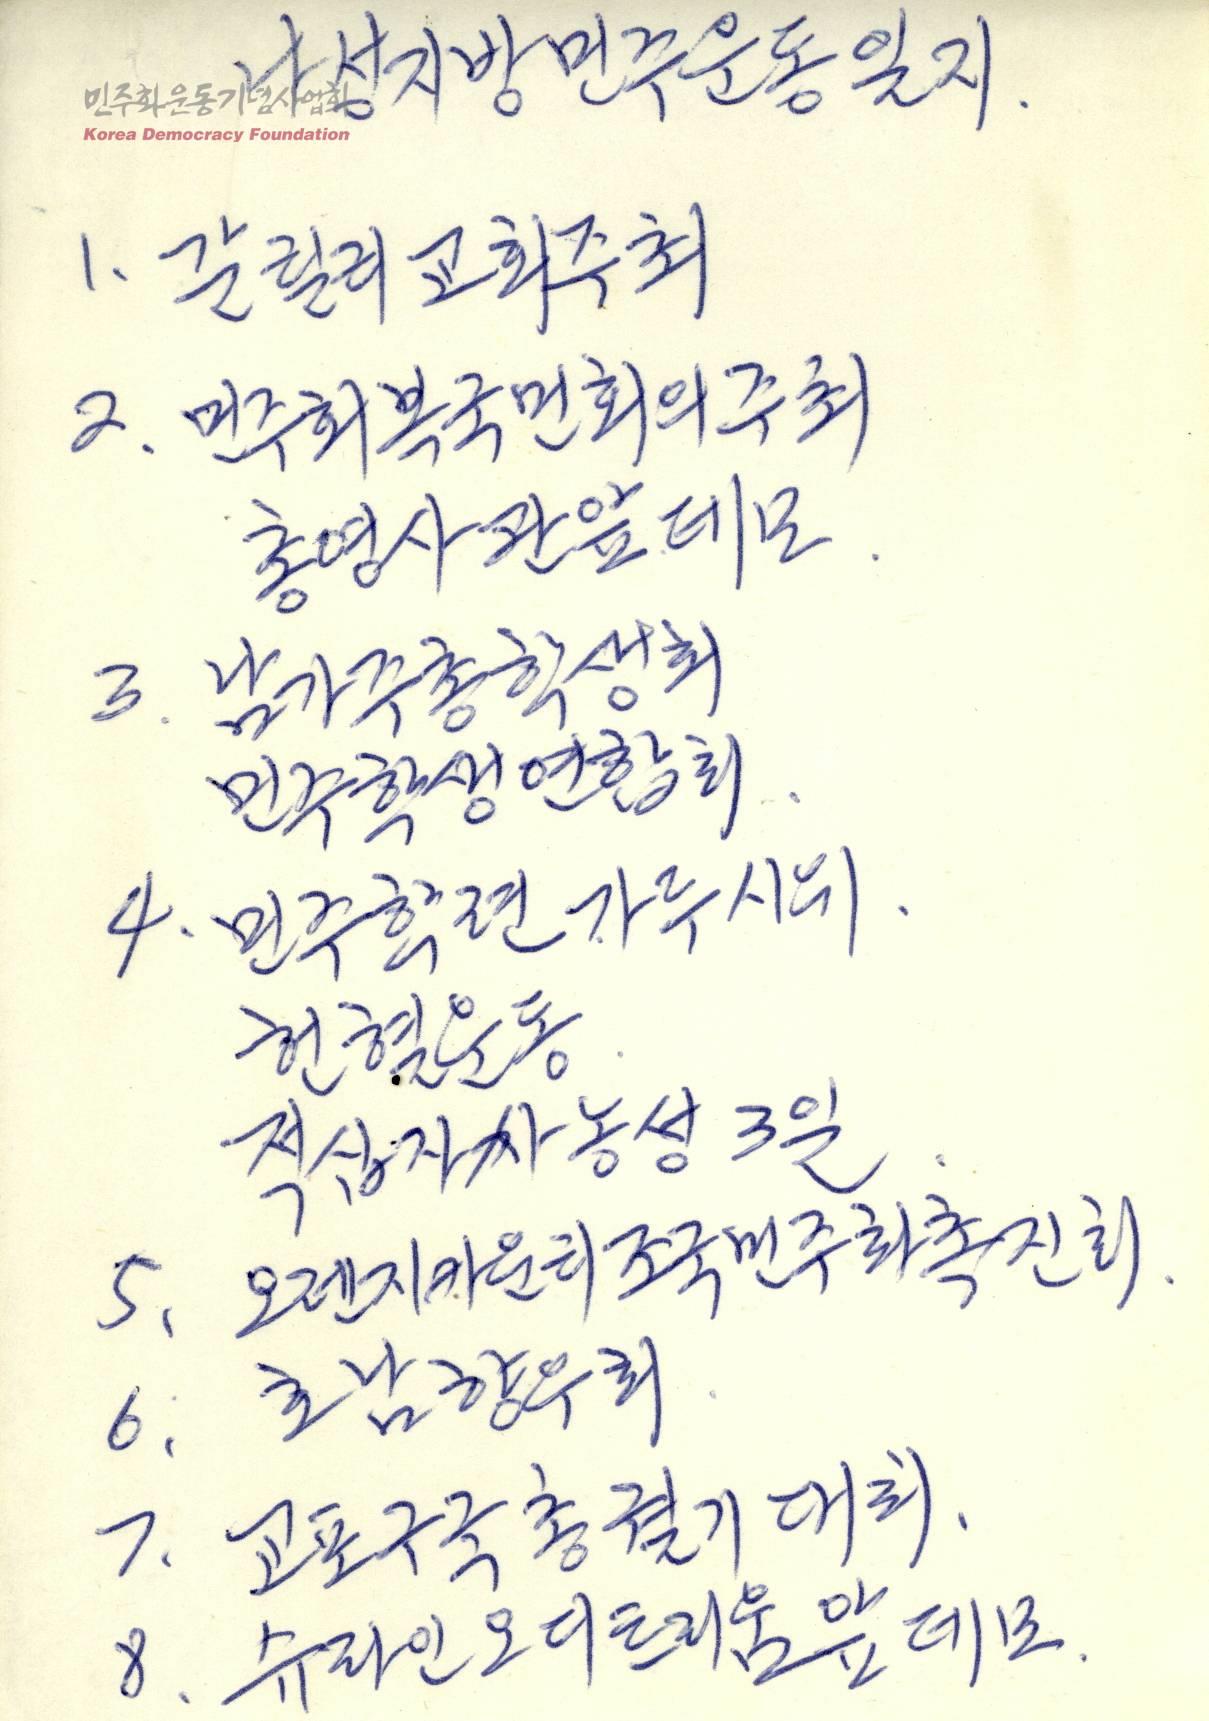 나성지방민주운동일지.
민주화운동기념사업회
Korea Democracy Foundation
1. 갈릴리 교회주최
2. 민주회복국민회의주최
총영사관앞 데모.
3. 남가주총학생회
민주학생연합회.
4. 민주학련 가두시위.
헌혈운동.
적십자사 농성 3일.
5. 오렌지카운티조국민주화촉진회.
6. 호남향우회.
7. 교포구국총궐기대회.
8. 슈라인오디토리움앞데모.